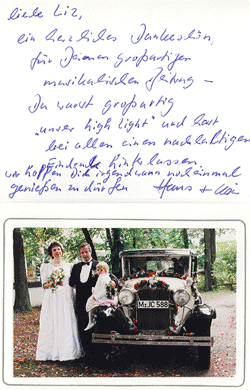 Liebe Liz,
ein herzliches Dankeschön,
für Deinen großartigen
musikalischen Beitrag –
Du warst großartig
"unser high light" und hast
bei allen einen nachhaltigen
Eindruck hinterlassen.
wir hoffen Dich irgendwann noch einmal
genießen zu dürfen Hans +
M·JC 588